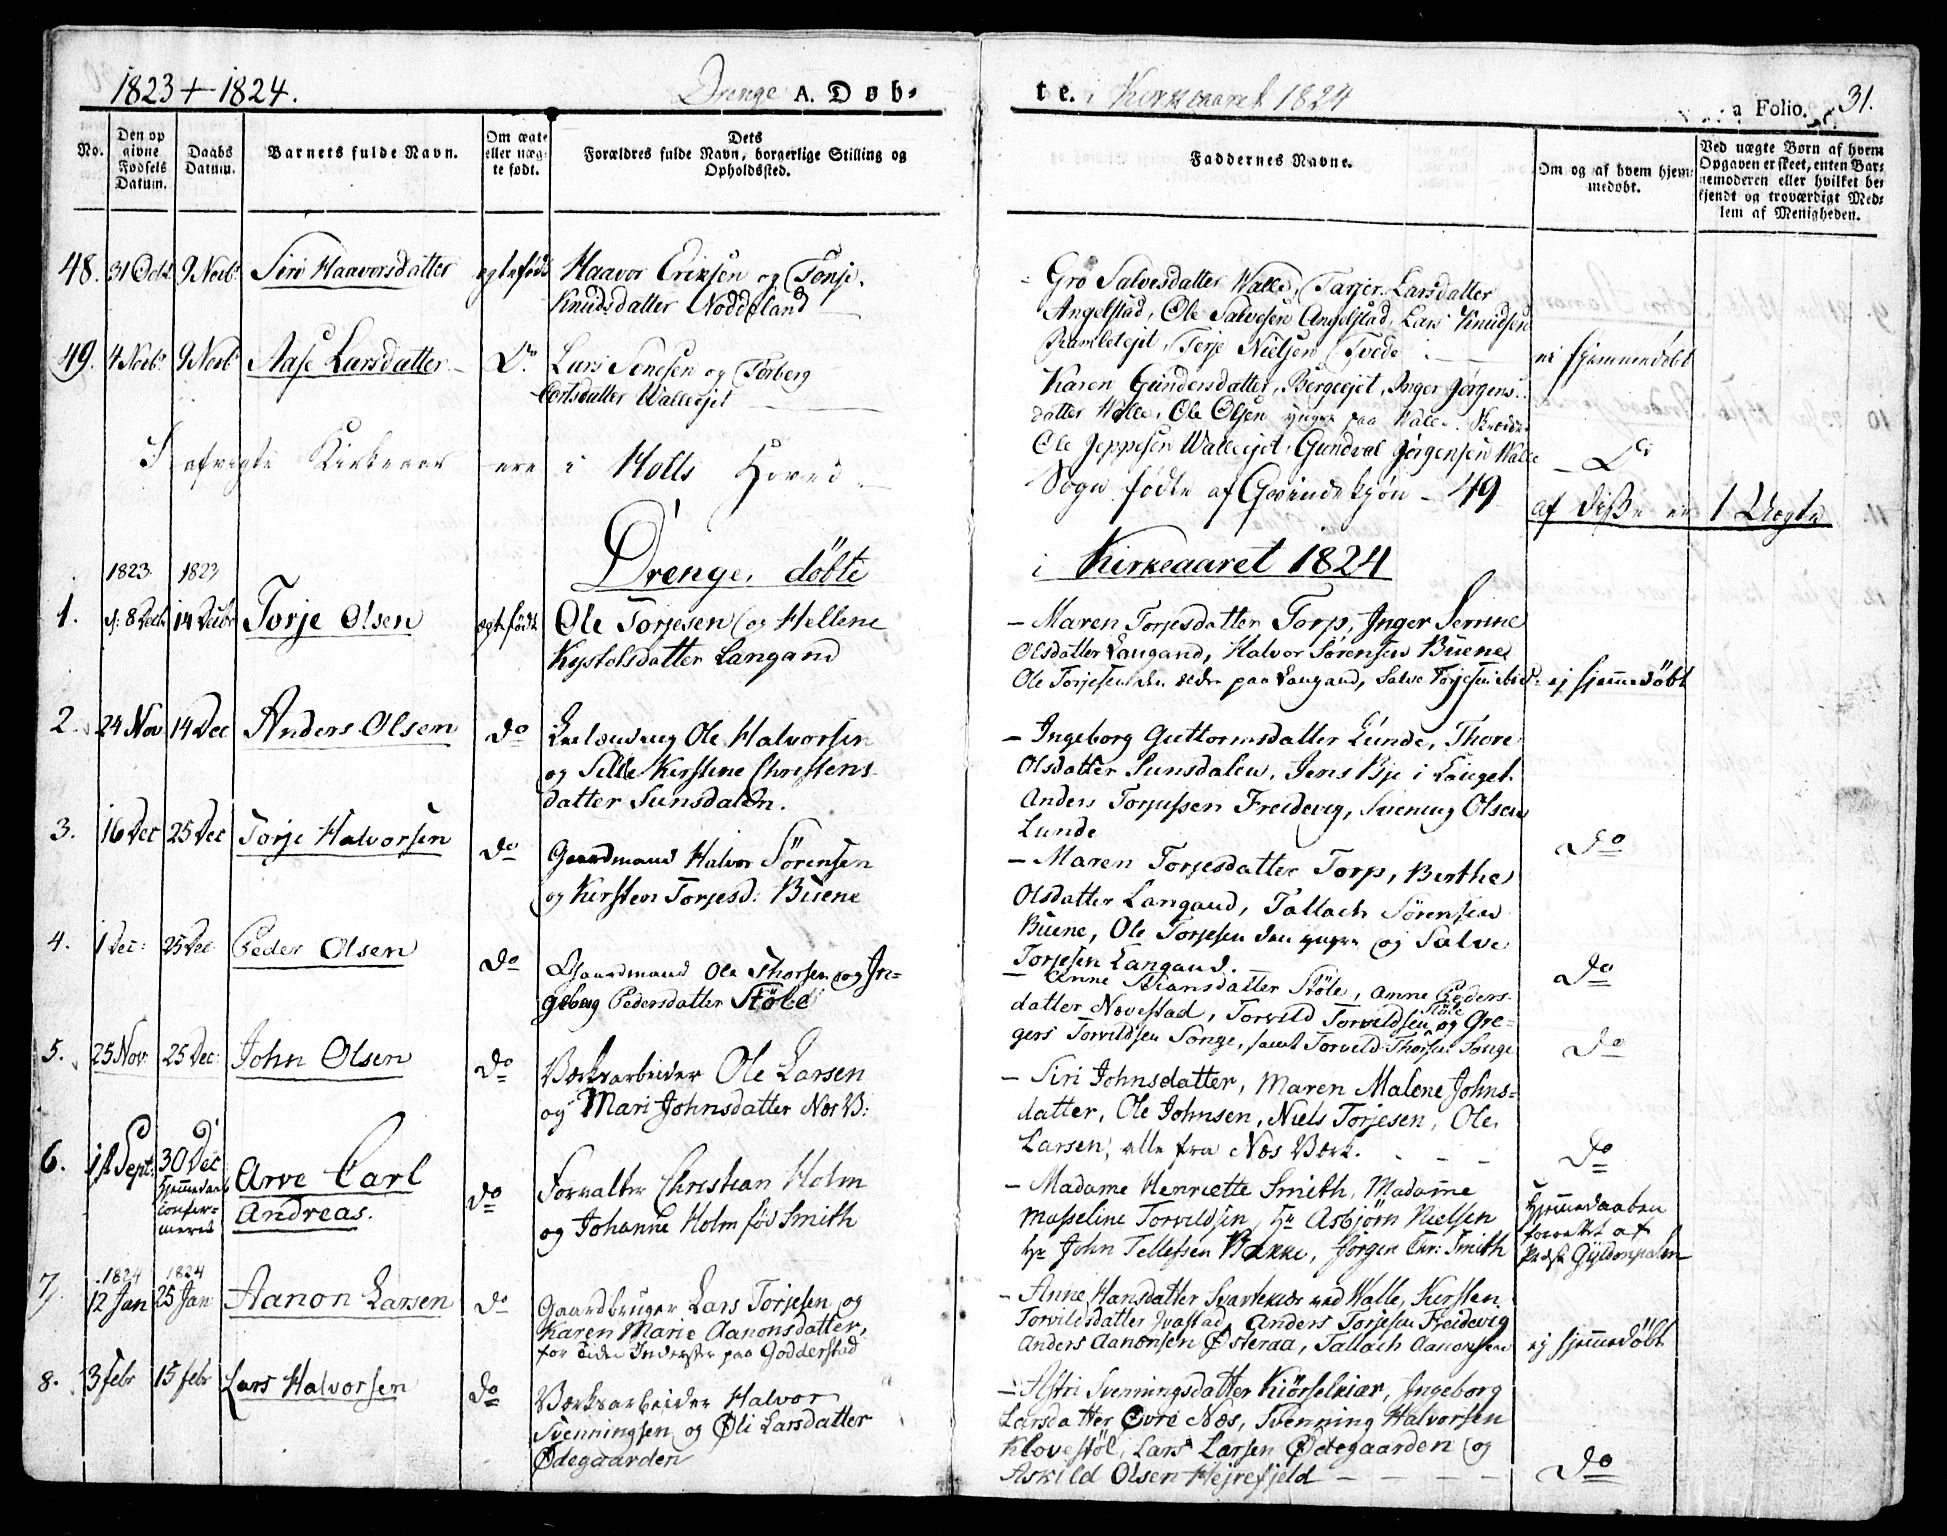 1823 + 1824.
Drenge A. Døb-
te. i Kirkeaaret 1824
a Folio. 31.
No.
Den op
givne
Fødsels
Datum.
Daabs
Datum.
Barnets fulde Navn.
Om ægte
eller uæg-
te født.
Dets
Forældres fulde Navn, borgerlige Stilling og
Opholdssted.
Faddernes Navne.
Om og af hvem hjem-
medøbt.
Ved uægte Børn af hvem
Opgaven er skeet, enten Bar-
nemoderen eller hvilket be-
kjendt og troværdigt Med-
lem af Menigheden.
48. 31 Octb 9 Novb Siri Haavorsdatter egtefødt Haavor Eriksen og Tonje
Knudsdatter Noddeland
Gro Salvesdatter Walle, Tarjer Larsdatter
Angelstad, Ole Salvesen Angelstad, Lars Knudsen
Ramletejet, Terje Nielsen Tvede ei hjemmedøbt
49. 4 Novb 9 Novb Aase Larsdatter Do Lars Tenesen og Torberg
datter Walleejet
Karen Gundersdatter, Bergeejet, Inger Jørgens-
datter Walle, Ole Olsen yngre paa Walle
Ole Jeppesen Walleejet, Gundval Jørgensen Walle Do
I afvigte Kirkeaar ere i Holts Hoved
Sogn fødte af Qvindekjøn - 49
af disse er 1 Uægte
Drenge døbte
i Kirkeaaret 1824
1823 1823
1. d: 8 Decb. 14 Decbr Torje Olsen egtefødt Ole Torjesen og Hellene
Kystolsdatter Langand
- Maren Torjesdatter Torp, Inger Serine
Olsdatter Langand, Halvor Sørensen Buene
Ole Torjesen den ældre paa Langand, Salve Torjesen ibid: ej hjemmedøbt
2. 24 Nov 14 Dec Anders Olsen do Ole Halvorsen
og Sille Kirstine Christens-
datter Sunsdalen.
- Ingeborg Guttormsdatter Lunde, Thore
Olsdatter Sunsdalen, Jens Bje i Lauget.
Anders Torjussen Freidevig, Svenung Olsen
Lunde do
3. 16 Dec 25 Dec Torje Halvorsen do Gaardmand Halvor Sørensen
og Kirsten Torjesd: Buene
- Maren Torjesdatter Torp, Berthe
Olsdatter Langand, Tallach Sørensen
Buene, Ole Torjesen den yngre og Salve
Torjesen Langand. do
4. 1 Dec: 25 Dec Peder Olsen do Gaardmand Ole Thorsen og In-
geborg Pedersdatter Støle
- Anne Hansdatter Støle, Anne Peders-
datter Novestad, Torvild Torvildsen Støle og Gre-
gers Torvildsen Songe, samt Torvild Thorsen Songe do
5. 25 Nov 25 Dec: John Olsen do Værksarbeider Ole Larsen
og Mari Johnsdatter Nes V:
- Siri Johnsdatter, Maren Malene Johns-
datter, Ole Johnsen, Niels Torjesen, Ole
Larsen, alle fra Næs Værk. do
6. 1 Sept: 30 Dec
hjemmedaab
confir-
meret
Arve Carl
Andreas. do Forvalter Christian Holm
og Johanne Holm fød Smith
- Madame Henriette Smith, Madame
Masseline Torvildsen, Hr Asbjørn Nielsen
Hr John Tellefsen Bakke, Jørgen Chr: Smith
Hjemmedaaben
forrettet af
Præst Gyldenpalm
1824 1824
7. 12 Jan 25 Jan Aanon Larsen do Gaardbruger Lars Torjesen og
Karen Marie Aanonsdatter,
for Tiden Inderster paa Godderstad
- Anne Hansdatter Svartekær ved Walle, Kirsten
Torvildsdatter Ivastad, Anders Torjesen Freidevig
Anders Aanonsen Østeraa, Tallach Aanonsen ej hjemmedøbt
8. 3 Febr 15 febr Lars Halvorsen do Værksarbeider Halvor
Svenningsen og Øli Larsdatter
Ødegaarden
- Astri Svenningsdatter Kiörselkiær, Ingeborg
Larsdatter Øvre Næs, Svenning Halvorsen
Klovestøl, Lars Larsen Ødegaarden og
Askild Olsen Hejrefjeld do